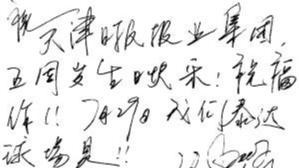 祝天津日报报业集团
五周岁生日快乐!祝福
你!!7月29日我们泰达
球场见!!